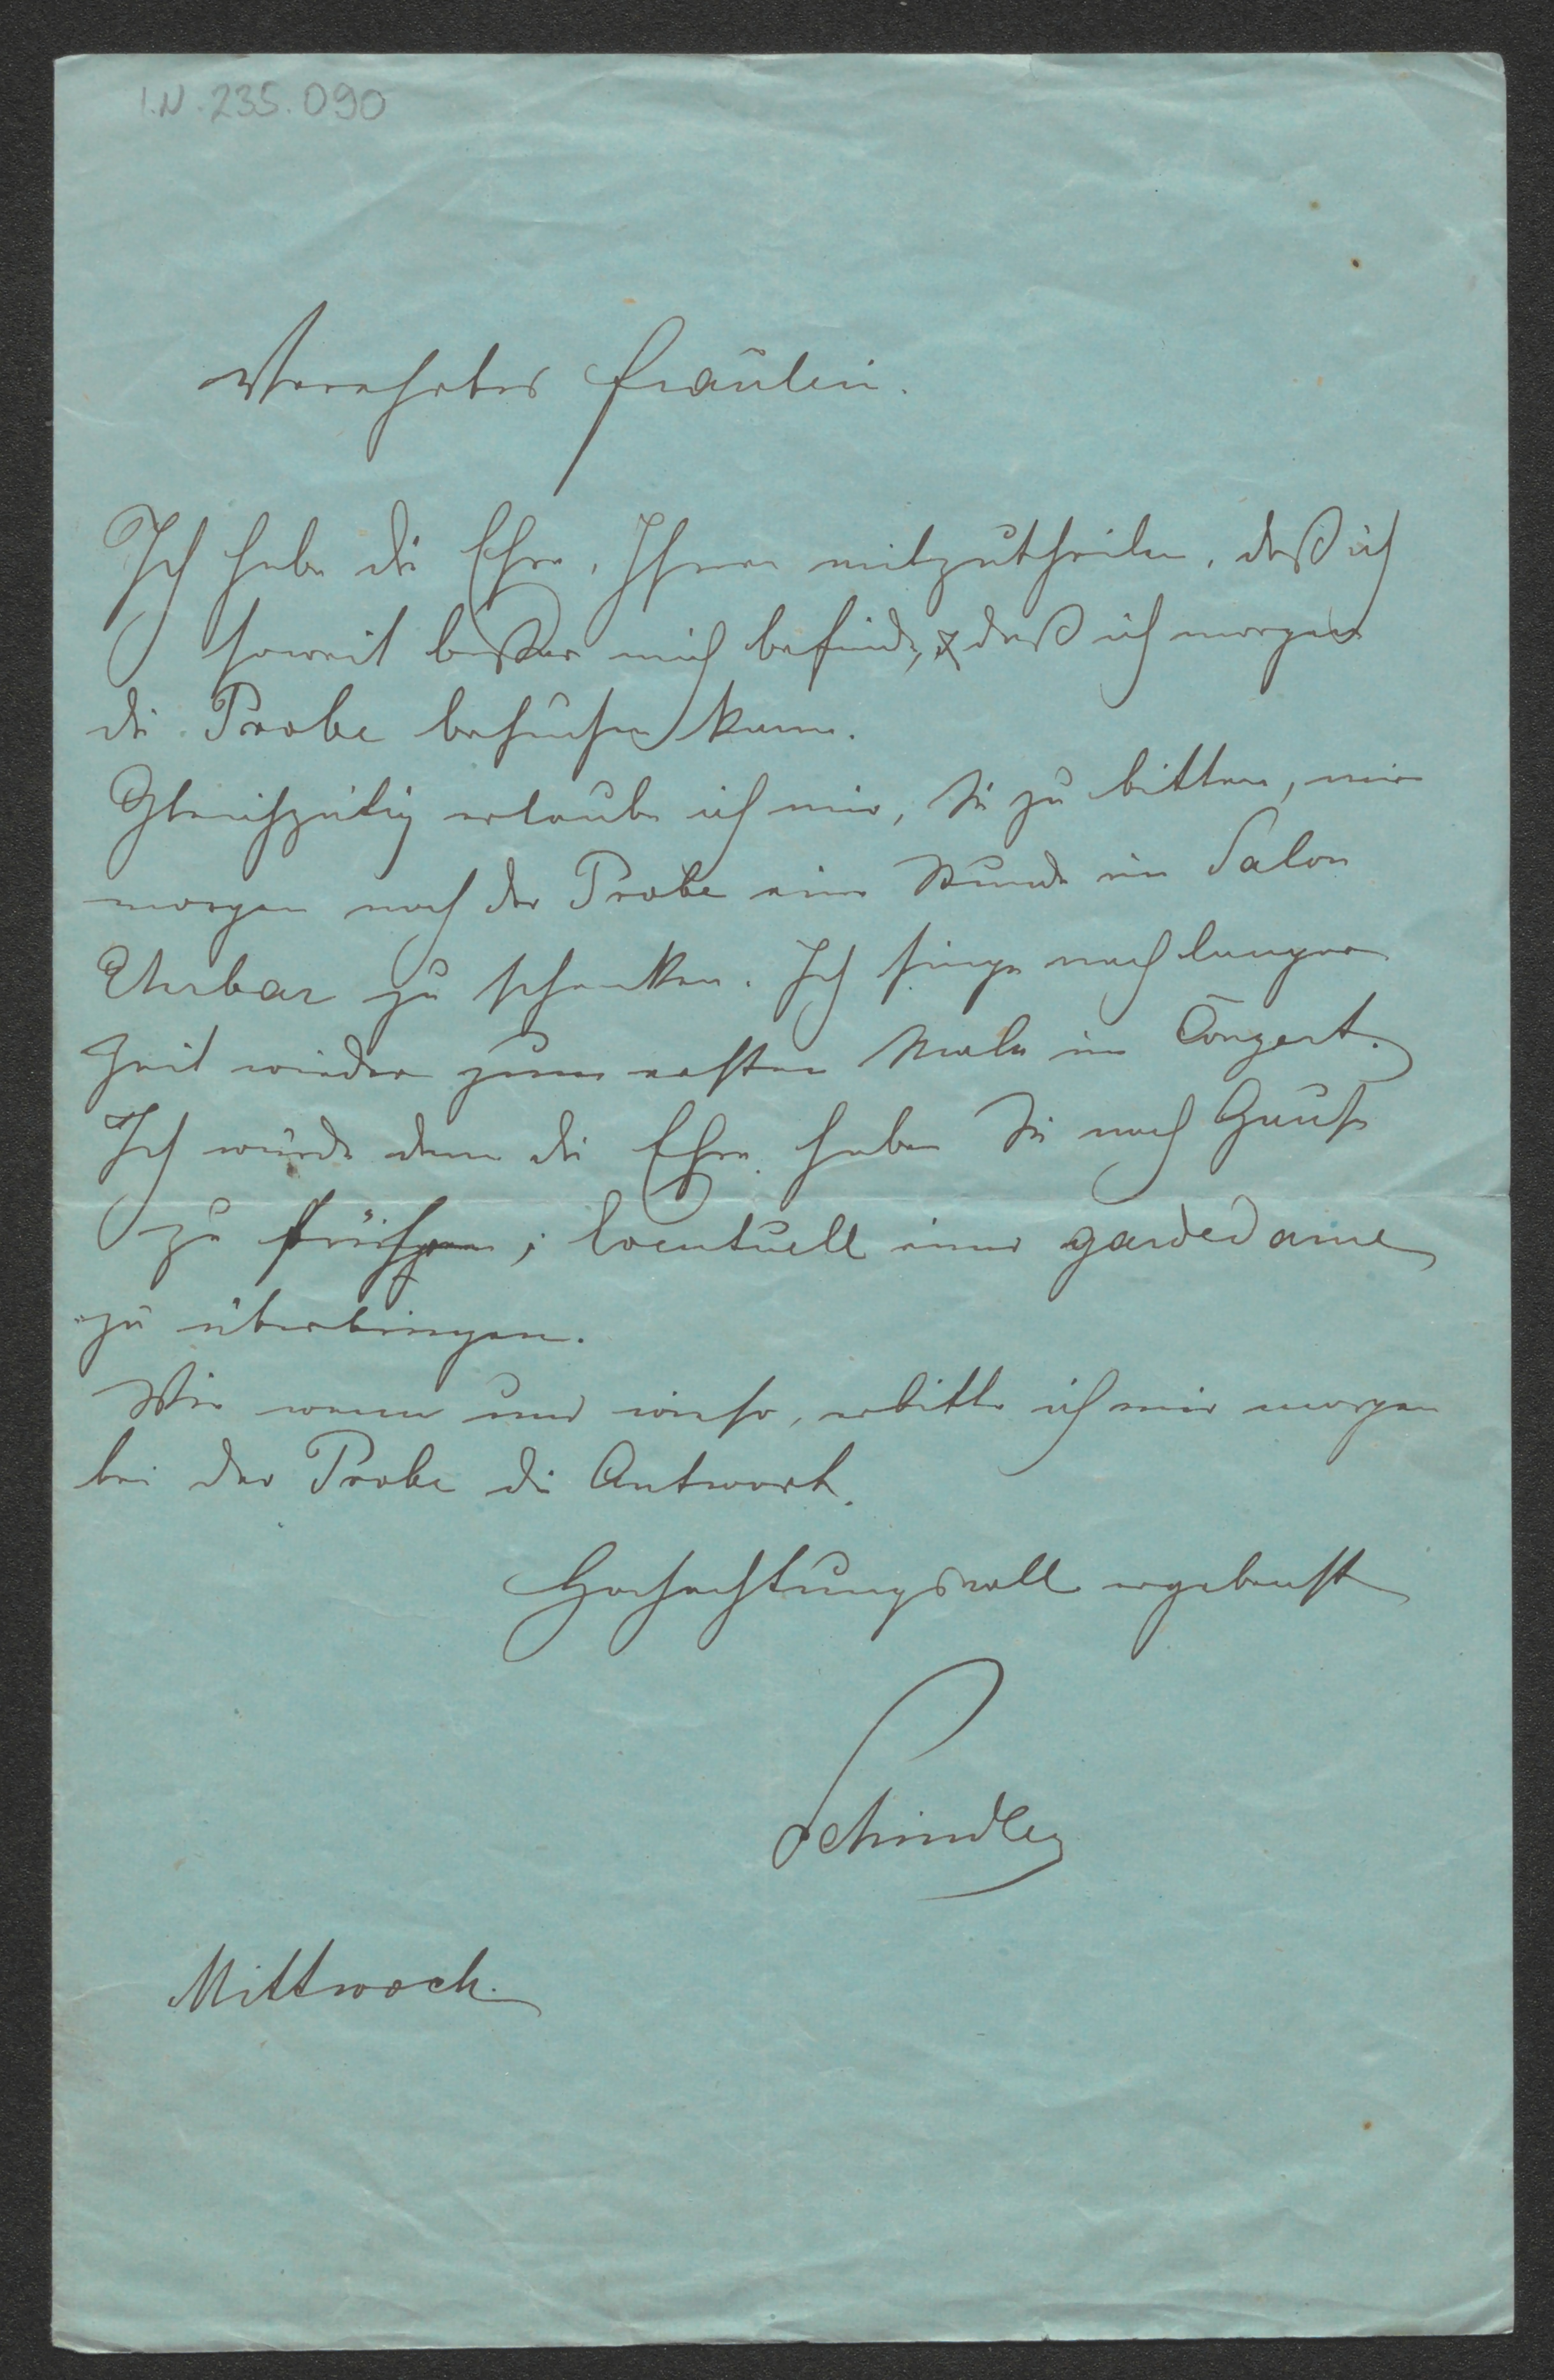 I.N. 235.090
Verehrtes Fräulein.
Ich habe die Ehre, Ihnen mitzutheilen, daß ich
soweit besser mich befinde, daß ich morgen
die Probe besuchen kann.
Gleichzeitig erlaube ich mir, Sie zu bitten, mir
morgen nach der Probe eine Stunde im Salon
Ehrbar zu schenken. Ich singe nach langer
Zeit wieder zum ersten Male im Conzert.
Ich würde dann die Ehre haben Sie nach Hause
zu ; Eventuell einer gardedame
zu überbringen.
Wie wann und wieso, erbitte ich mir morgen
bei der Probe die Antwort.
Hochachtungsvoll ergebenst
Schindler
Mittwoch.